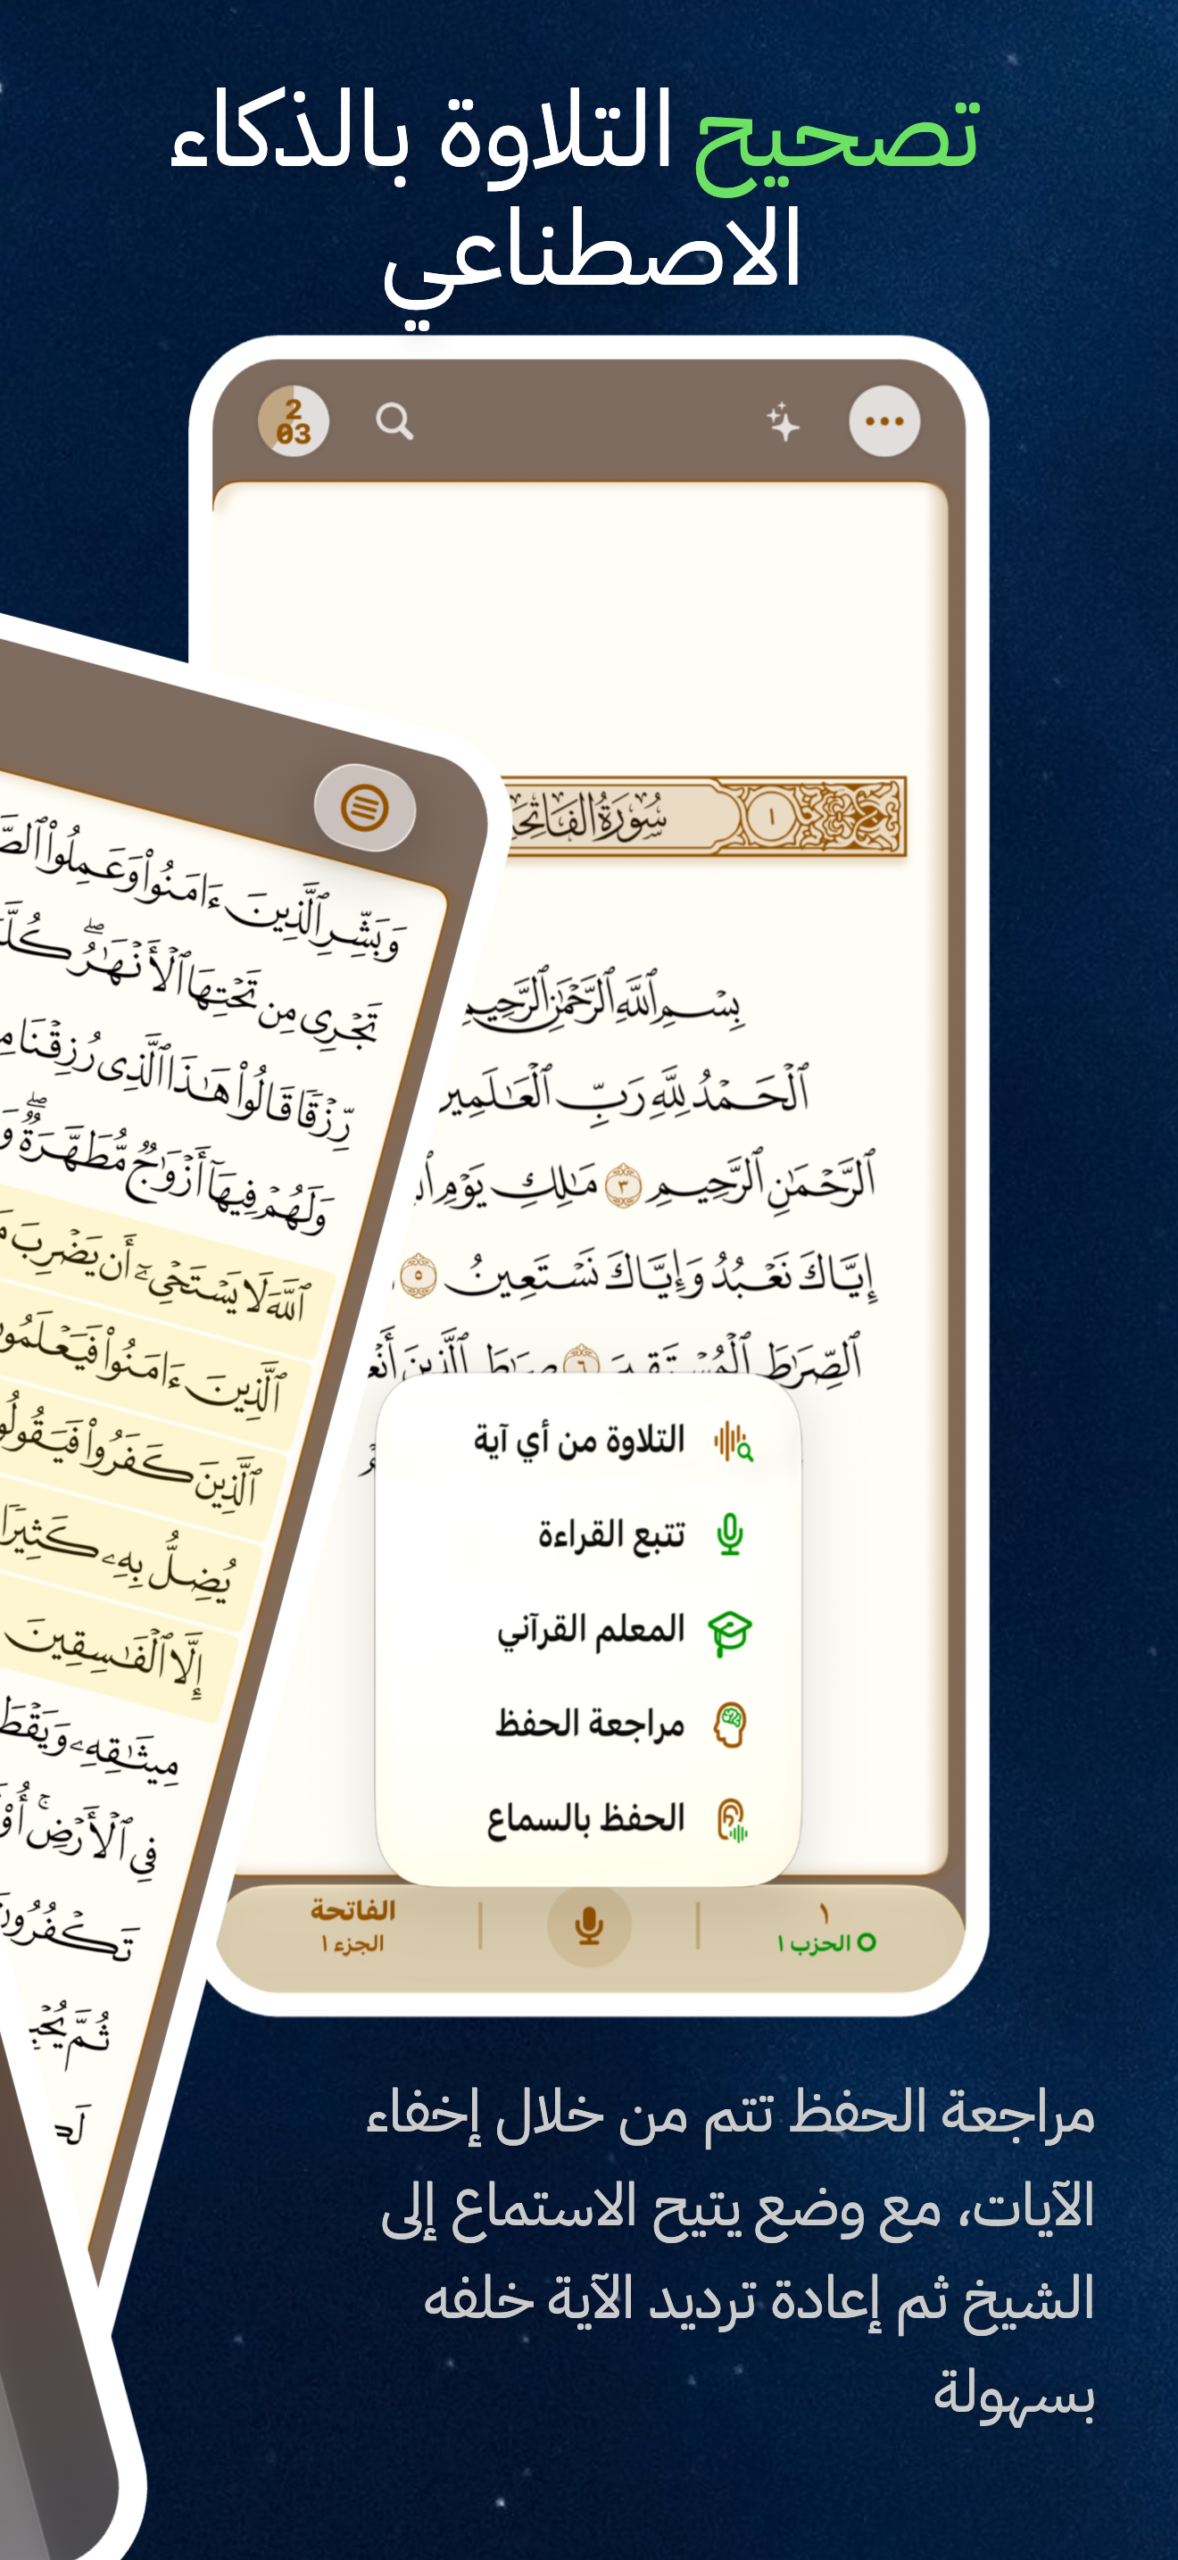 تصحيح التلاوة بالذكاء
الاصطناعي
2
03
سُورَةُ الفَاتِحَة
١
بِسْمِ ٱللَّهِ ٱلرَّحْمَٰنِ ٱلرَّحِيمِ
ٱلْحَمْدُ لِلَّهِ رَبِّ ٱلْعَٰلَمِين
ٱلرَّحْمَٰنِ ٱلرَّحِيمِ ٣ مَٰلِكِ يَوْمِ
إِيَّاكَ نَعْبُدُ وَإِيَّاكَ نَسْتَعِينُ ٥
ٱلصِّرَٰطَ ٱلْمُسْتَقِيمَ ٦ صِرَٰطَ ٱلَّذِينَ
التلاوة من أي آية
تتبع القراءة
المعلم القرآني
مراجعة الحفظ
الحفظ بالسماع
١
الحزب ١
الفاتحة
الجزء ١
وَبَشِّرِ ٱلَّذِينَ ءَامَنُوا۟ وَعَمِلُوا۟
تَجْرِى مِن تَحْتِهَا ٱلْأَنْهَٰرُ ۖ
رِّزْقًا قَالُوا۟ هَٰذَا ٱلَّذِى رُزِقْنَا
وَلَهُمْ فِيهَآ أَزْوَٰجٌ مُّطَهَّرَةٌ ۖ
ٱللَّهَ لَا يَسْتَحْىِۦٓ أَن يَضْرِبَ
ٱلَّذِينَ ءَامَنُوا۟ فَيَعْلَمُون
ٱلَّذِينَ كَفَرُوا۟ فَيَقُولُو
يُضِلُّ بِهِۦ كَثِيرًا
إِلَّا ٱلْفَٰسِقِينَ
مِيثَٰقِهِۦ وَيَقْطَ
فِى ٱلْأَرْضِ ۚ
تَكْفُرُون
ثُمَّ
مراجعة الحفظ تتم من خلال إخفاء
الآيات، مع وضع يتيح الاستماع إلى
الشيخ ثم إعادة ترديد الآية خلفه
بسهولة